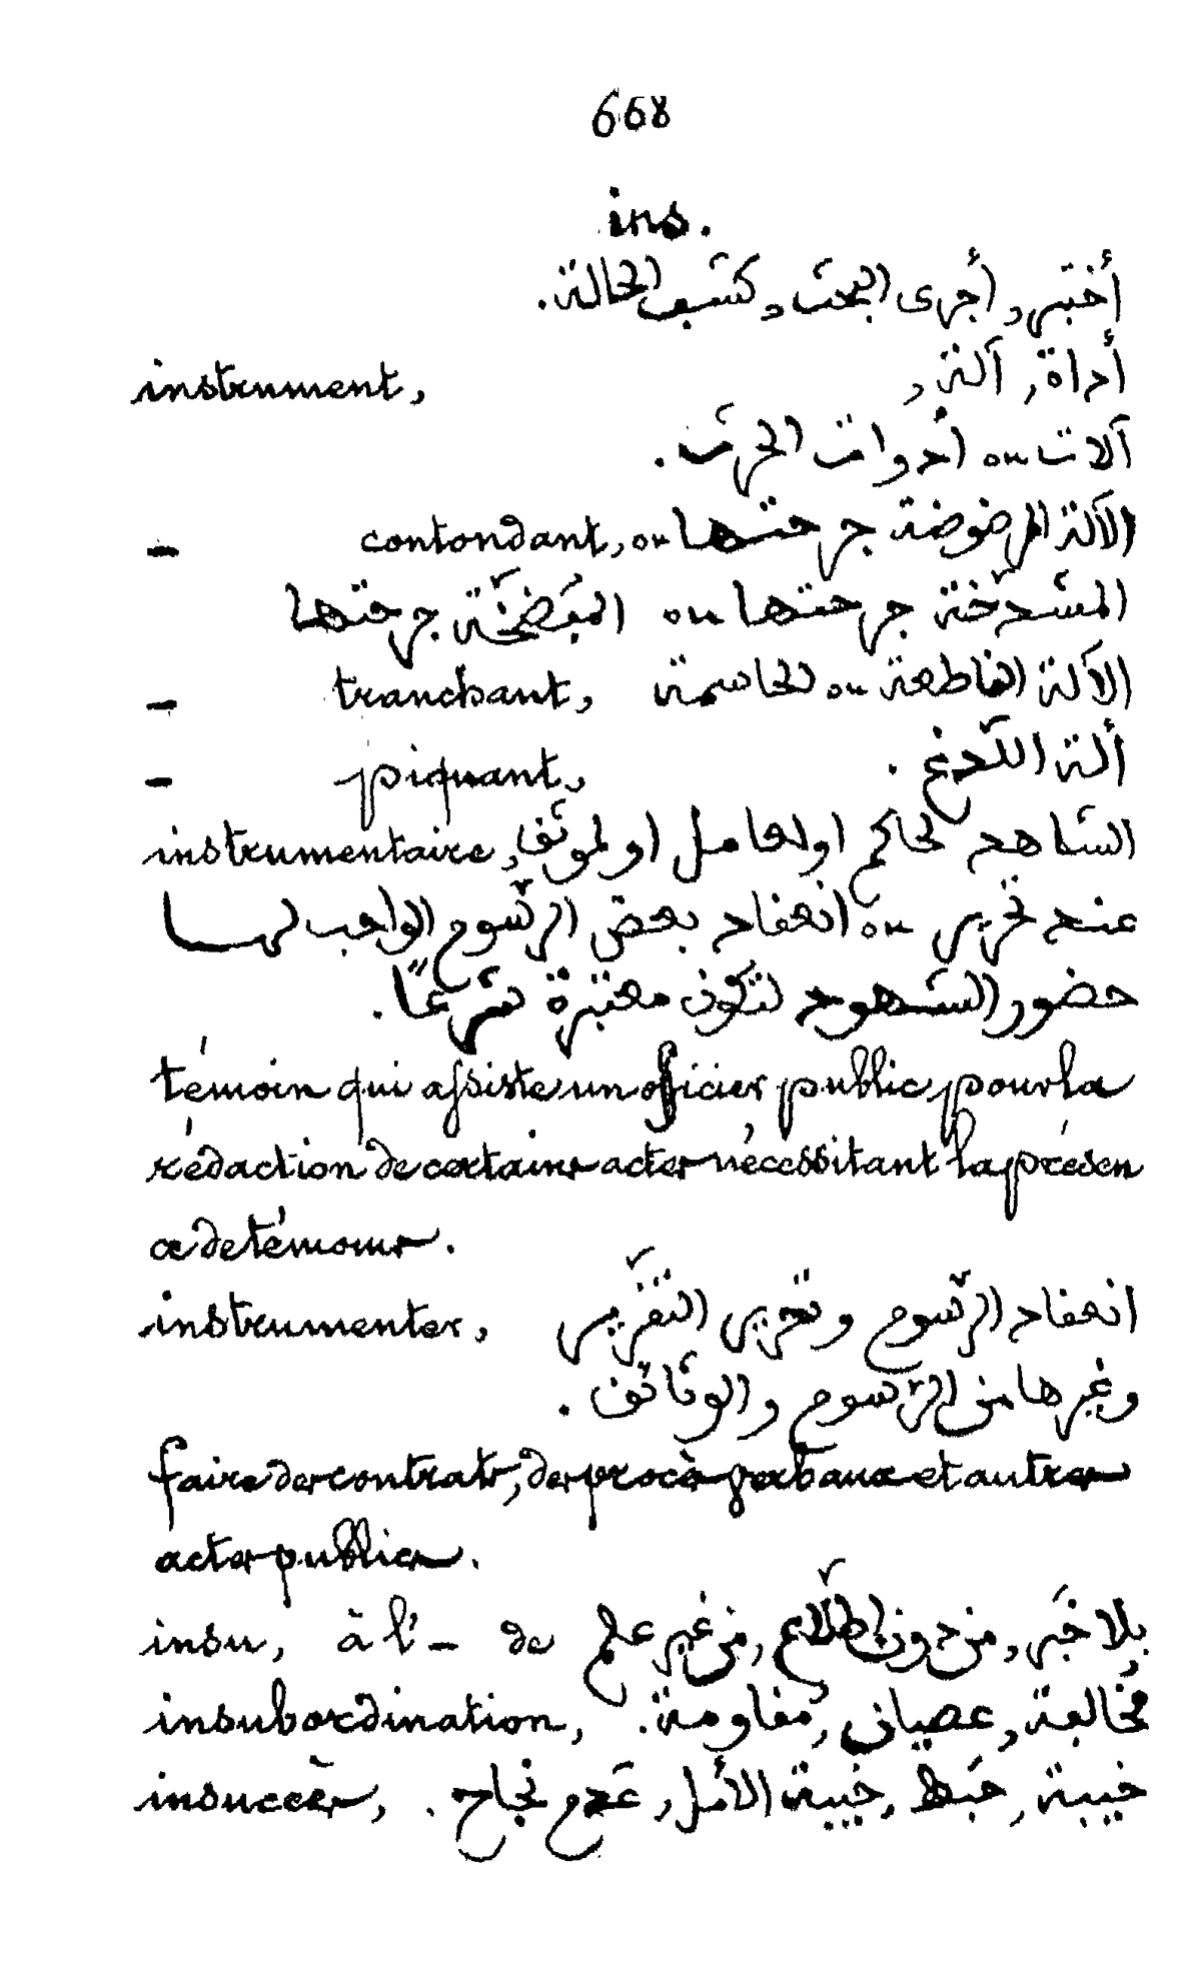 668
ins.
أختبر, أجرى البحث, كشف الحالة.
instrument, أداة, آلة,
آلات ou أدوات الحرث.
— contondant, الآلة المرضوضة جرحتها ou
المشدّخة جرحتها ou المفضخّة جرحتها
— tranchant, الآلة القاطعة ou الحاسمة
— piquant, ألة اللّدغ.
instrumentaire, الشاهد لحاكم او لعامل او لموثق
عند تحرير ou انعقاد بعض الرّسوم الواجب لهـا
حضور الشهود لتكون معتبرة شرعًا.
témoin qui assiste un officier public pour la
rédaction de certains actes nécessitant la présen
ce de témoins.
instrumenter, انعقاد الرّسوم وتحرير التّقرير
وغيرها من الرّسوم والوثائق.
faire des contrats, des procès verbaux et autres
actes publics.
insu, à l'— de بلا خبر, من دون اطّلاع, من غير علم
insubordination, مخالفة, عصيان, مقاومة.
insuccès, خيبة, حبط, خيبة الأمل, عدم نجاح.